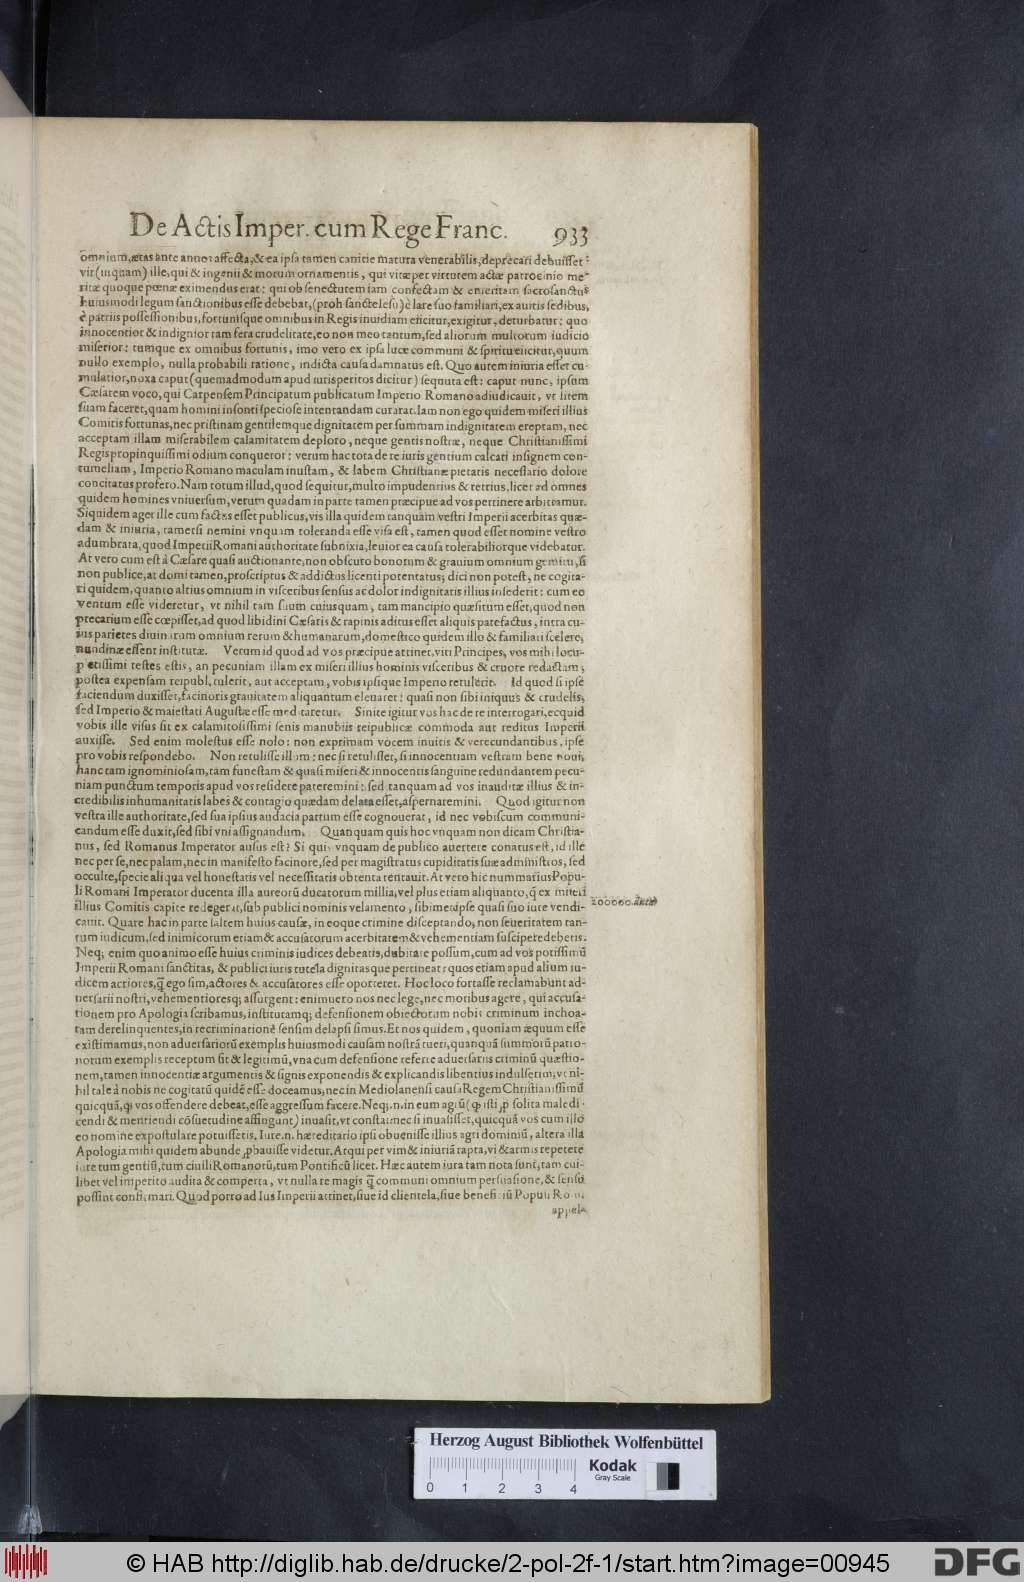 De Actis Imper. cum Rege Franc. 933
omnium, ætas ante annos affecta, & ea ipsa tamen canicie matura venerabilis, deprecari debuisset:
vir (inquam) ille, qui & ingenii & morum ornamentis, qui vitæ per virtutem actæ patrocinio me-
ritæ quoque pœnæ eximendus erat: qui ob senectutem iam confectam & emeritam sacrosanctus
huiusmodi legum sanctionibus esse debebat, (proh sancte Iesu) è lare suo familiari, ex auitis sedibus,
è patriis possessionibus, fortunisque omnibus in Regis inuidiam eiicitur, exigitur, deturbatur: quo
innocentior & indignior tam fera crudelitate, eo non meo tantum, sed aliorum multorum iudicio
miserior: tumque ex omnibus fortunis, imo vero ex ipsa luce communi & spiritu eiicitur, quum
nullo exemplo, nulla probabili ratione, indicta causa damnatus est. Quo autem iniuria esset cu-
mulatior, noxa caput (quemadmodum apud iurisperitos dicitur) sequuta est: caput nunc, ipsum
Cæsarem voco, qui Carpensem Principatum publicatum Imperio Romano adiudicauit, vt litem
suam faceret, quam homini insonti speciose intentandam curarat. Iam non ego quidem miseri illius
Comitis fortunas, nec pristinam gentilemque dignitatem per summam indignitatem ereptam, nec
acceptam illam miserabilem calamitatem deploro, neque gentis nostræ, neque Christianissimi
Regis propinquissimi odium conqueror: verum hac tota de re iuris gentium calcati insignem con-
tumeliam, Imperio Romano maculam inustam, & labem Christianæ pietatis necessario dolore
concitatus profero. Nam totum illud, quod sequitur, multo impudentius & tetrius, licet ad omnes
quidem homines vniuersum, verum quadam in parte tamen præcipue ad vos pertinere arbitramur.
Siquidem ager ille cum factus esset publicus, vis illa quidem tanquam vestri Imperii acerbitas quæ-
dam & iniuria, tametsi nemini vnquam toleranda esse visa est, tamen quod esset nomine vestro
adumbrata, quod Imperii Romani authoritate subnixia, leuior ea causa tolerabiliorque videbatur.
At vero cum est à Cæsare quasi auctionante, non obscuro bonorum & grauium omnium gemitu, si
non publice, at domi tamen, proscriptus & addictus licenti potentatus; dici non potest, ne cogita-
ri quidem, quanto altius omnium in visceribus sensus ac dolor indignitatis illius insederit: cum eo
ventum esse videretur, vt nihil tam suum cuiusquam, tam mancipio quæsitum esset, quod non
precarium esse cœpisset, ad quod libidini Cæsaris & rapinis aditus esset aliquis patefactus, intra cu-
ius parietes diuinarum omnium rerum & humanarum, domestico quidem illo & familiari scelere,
nundinæ essent institutæ. Verum id quod ad vos præcipue attinet, viri Principes, vos mihi locu-
pletissimi testes estis, an pecuniam illam ex miseri illius hominis visceribus & cruore redactam,
postea expensam reipubl. tulerit, aut acceptam, vobis ipsique Imperio retulerit. Id quod si ipse
faciendum duxisset, facinoris grauitatem aliquantum eleuaret: quasi non sibi iniquus & crudelis,
sed Imperio & maiestati Augustæ esse meditaretur. Sinite igitur vos hac de re interrogari, ecquid
vobis ille visus sit ex calamitosissimi senis manubiis reipublicæ commoda aut reditus Imperii
auxisse. Sed enim molestus esse nolo: non exprimam vocem inuitis & verecundantibus, ipse
pro vobis respondebo. Non retulisse illum: nec si retulisset, si innocentiam vestram bene noui,
hanc tam ignominiosam, tam funestam & quasi miseri & innocentis sanguine redundantem pecu-
niam punctum temporis apud vos residere pateremini: sed tanquam ad vos inauditæ illius & in-
credibilis inhumanitatis labes & contagio quædam delata esset, aspernaremini. Quod igitur non
vestra ille authoritate, sed sua ipsius audacia partum esse cognouerat, id nec vobiscum communi-
candum esse duxit, sed sibi vni assignandum. Quanquam quis hoc vnquam non dicam Christia-
nus, sed Romanus Imperator ausus est? Si quis vnquam de publico auertere conatus est, id ille
nec per se, nec palam, nec in manifesto facinore, sed per magistratus cupiditatis suæ administros, sed
occulte, specie aliqua vel honestatis vel necessitatis obtenta tentauit. At vero hic nummarius Popu-
li Romani Imperator ducenta illa aureorũ ducatorum millia, vel plus etiam aliquanto, q̃ ex miseri
illius Comitis capite redegerat, sub publici nominis velamento, sibimetipse quasi suo iure vendi-
cauit. Quare hac in parte saltem huius causæ, in eoque crimine disceptando, non seueritatem tan-
tum iudicum, sed inimicorum etiam & accusatorum acerbitatem & vehementiam suscipere debetis.
Neq; enim quo animo esse huius criminis iudices debeatis, dubitare possum, cum ad vos potissimũ
Imperii Romani sanctitas, & publici iuris tutela dignitasque pertineat: quos etiam apud alium iu-
dicem actiores, q̃ ego sim, actores & accusatores esse oporteret. Hoc loco fortasse reclamabunt ad-
uersarii nostri, vehementioresq; assurgent: enimuero nos nec lege, nec moribus agere, qui accusa-
tionem pro Apologia scribamus, institutamq; defensionem obiectorum nobis criminum inchoa-
tam derelinquentes, in recriminationẽ sensim delapsi simus. Et nos quidem, quoniam æquum esse
existimamus, non aduersariorũ exemplis huiusmodi causam nostrã tueri, quanquã summorũ patro-
norum exemplis receptum sit & legitimũ, vna cum defensione referre aduersariis criminũ quæstio-
nem, tamen innocentiæ argumentis & signis exponendis & explicandis libentius indulserim, vt ni-
hil tale à nobis ne cogitatũ quidẽ esse doceamus, nec in Mediolanensi causa Regem Christianissimũ
quicquã, qd vos offendere debeat, esse aggressum facere. Neq;.n. in eum agrũ (qd isti p solita maledi-
cendi & mentiendi cõsuetudine affingunt) inuasit, vt constat: nec si inuasisset, quicquã vos cum illo
eo nomine expostulare potuissetis. Iure.n. hæreditario ipsi obuenisse illius agri dominiũ, altera illa
Apologia mihi quidem abunde pbauisse videtur. Atqui per vim & iniuriã rapta, vi & armis repetere
iure tum gentiũ, tum ciuili Romanorũ, tum Pontificũ licet. Hæc autem iura tam nota sunt, tam cui-
libet vel imperito audita & comperta, vt nulla re magis q̃ communi omnium persuasione, & sensu
possint confirmari. Quod porro ad Ius Imperii attinet, siue id clientela, siue beneficiũ Populi Rom.
appela-
200000. ducat
Herzog August Bibliothek Wolfenbüttel
Kodak
Gray Scale
0 1 2 3 4
© HAB http://diglib.hab.de/drucke/2-pol-2f-1/start.htm?image=00945
DFG